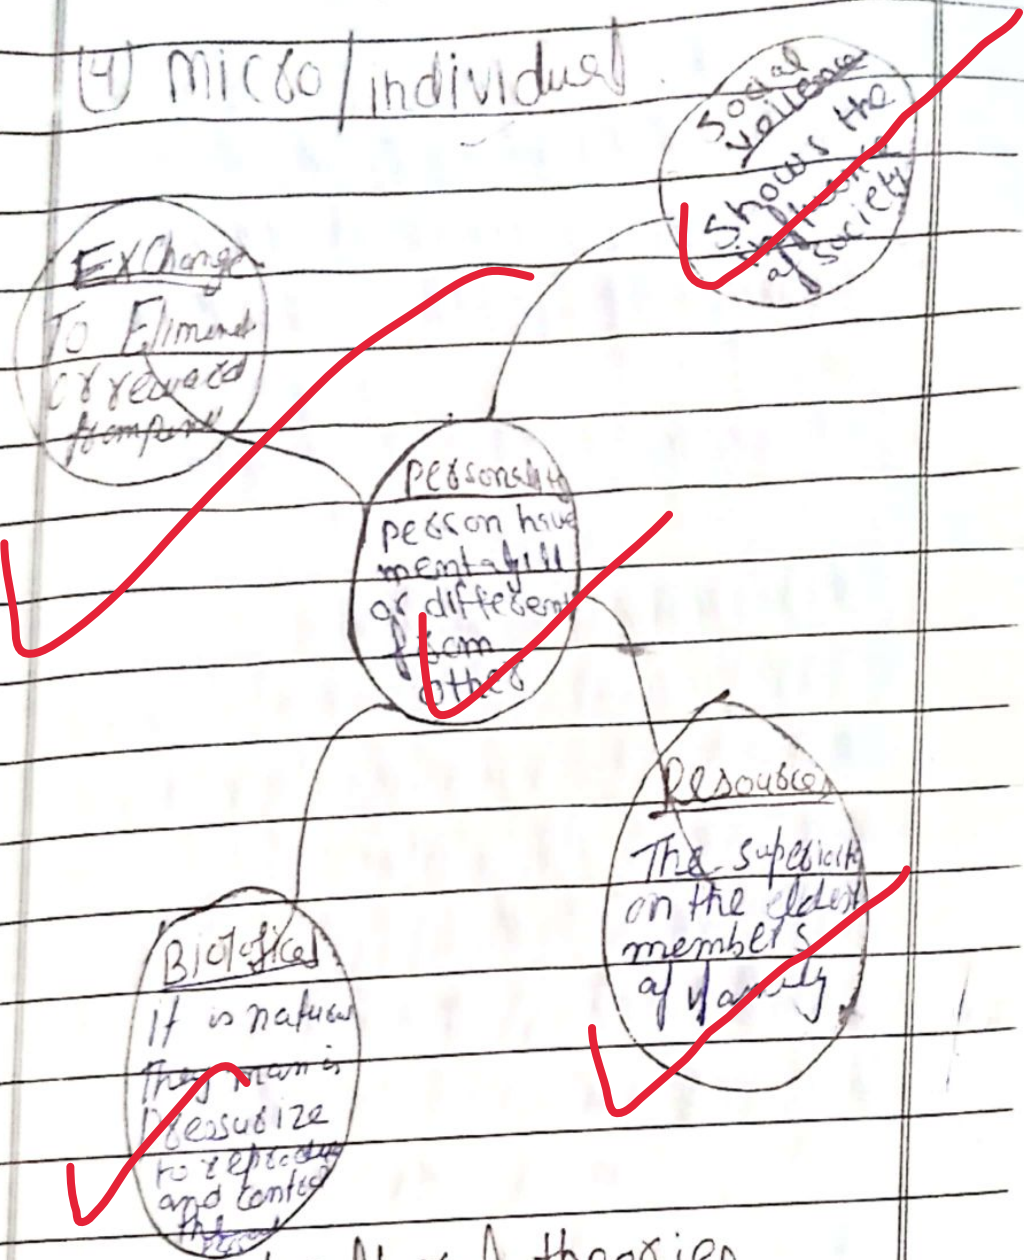 (4) Micro/individual
Social
Voilence
Shows the
influence
of society
Exchange
To Eliminet
or reward
Personality
person have
mentalill
or different
from
other
Resources
The superiority
on the eldest
members
of family
Biological
It is natural
They man is
Preasurize
to reproduce
and control
the
theories